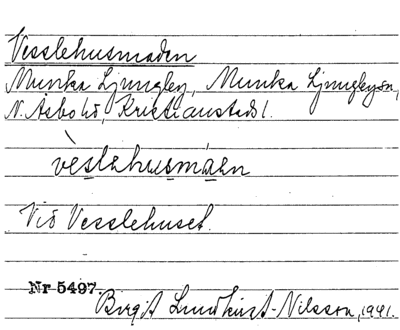 Vesslehusmaden
Munka Ljungby, Munka Ljungbysn,
N. Åsbo hd, Kristianstads l.
vèslehusmáen
Vid Vesslehuset.
Nr 5497.
Birgit Lundqvist-Nilsson, 1941.